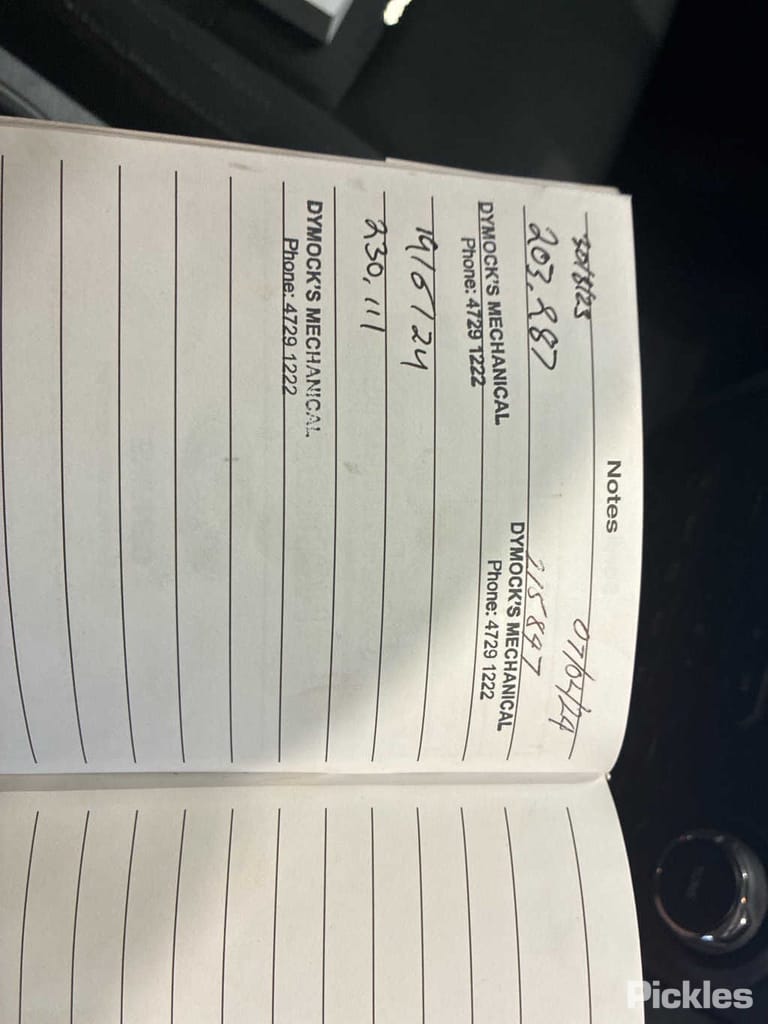 Notes
30/8/23
203,887
DYMOCK'S MECHANICAL
Phone: 4729 1222
07/02/24
215847
DYMOCK'S MECHANICAL
Phone: 4729 1222
19/6/24
230,111
DYMOCK'S MECHANICAL
Phone: 4729 1222
Pickles